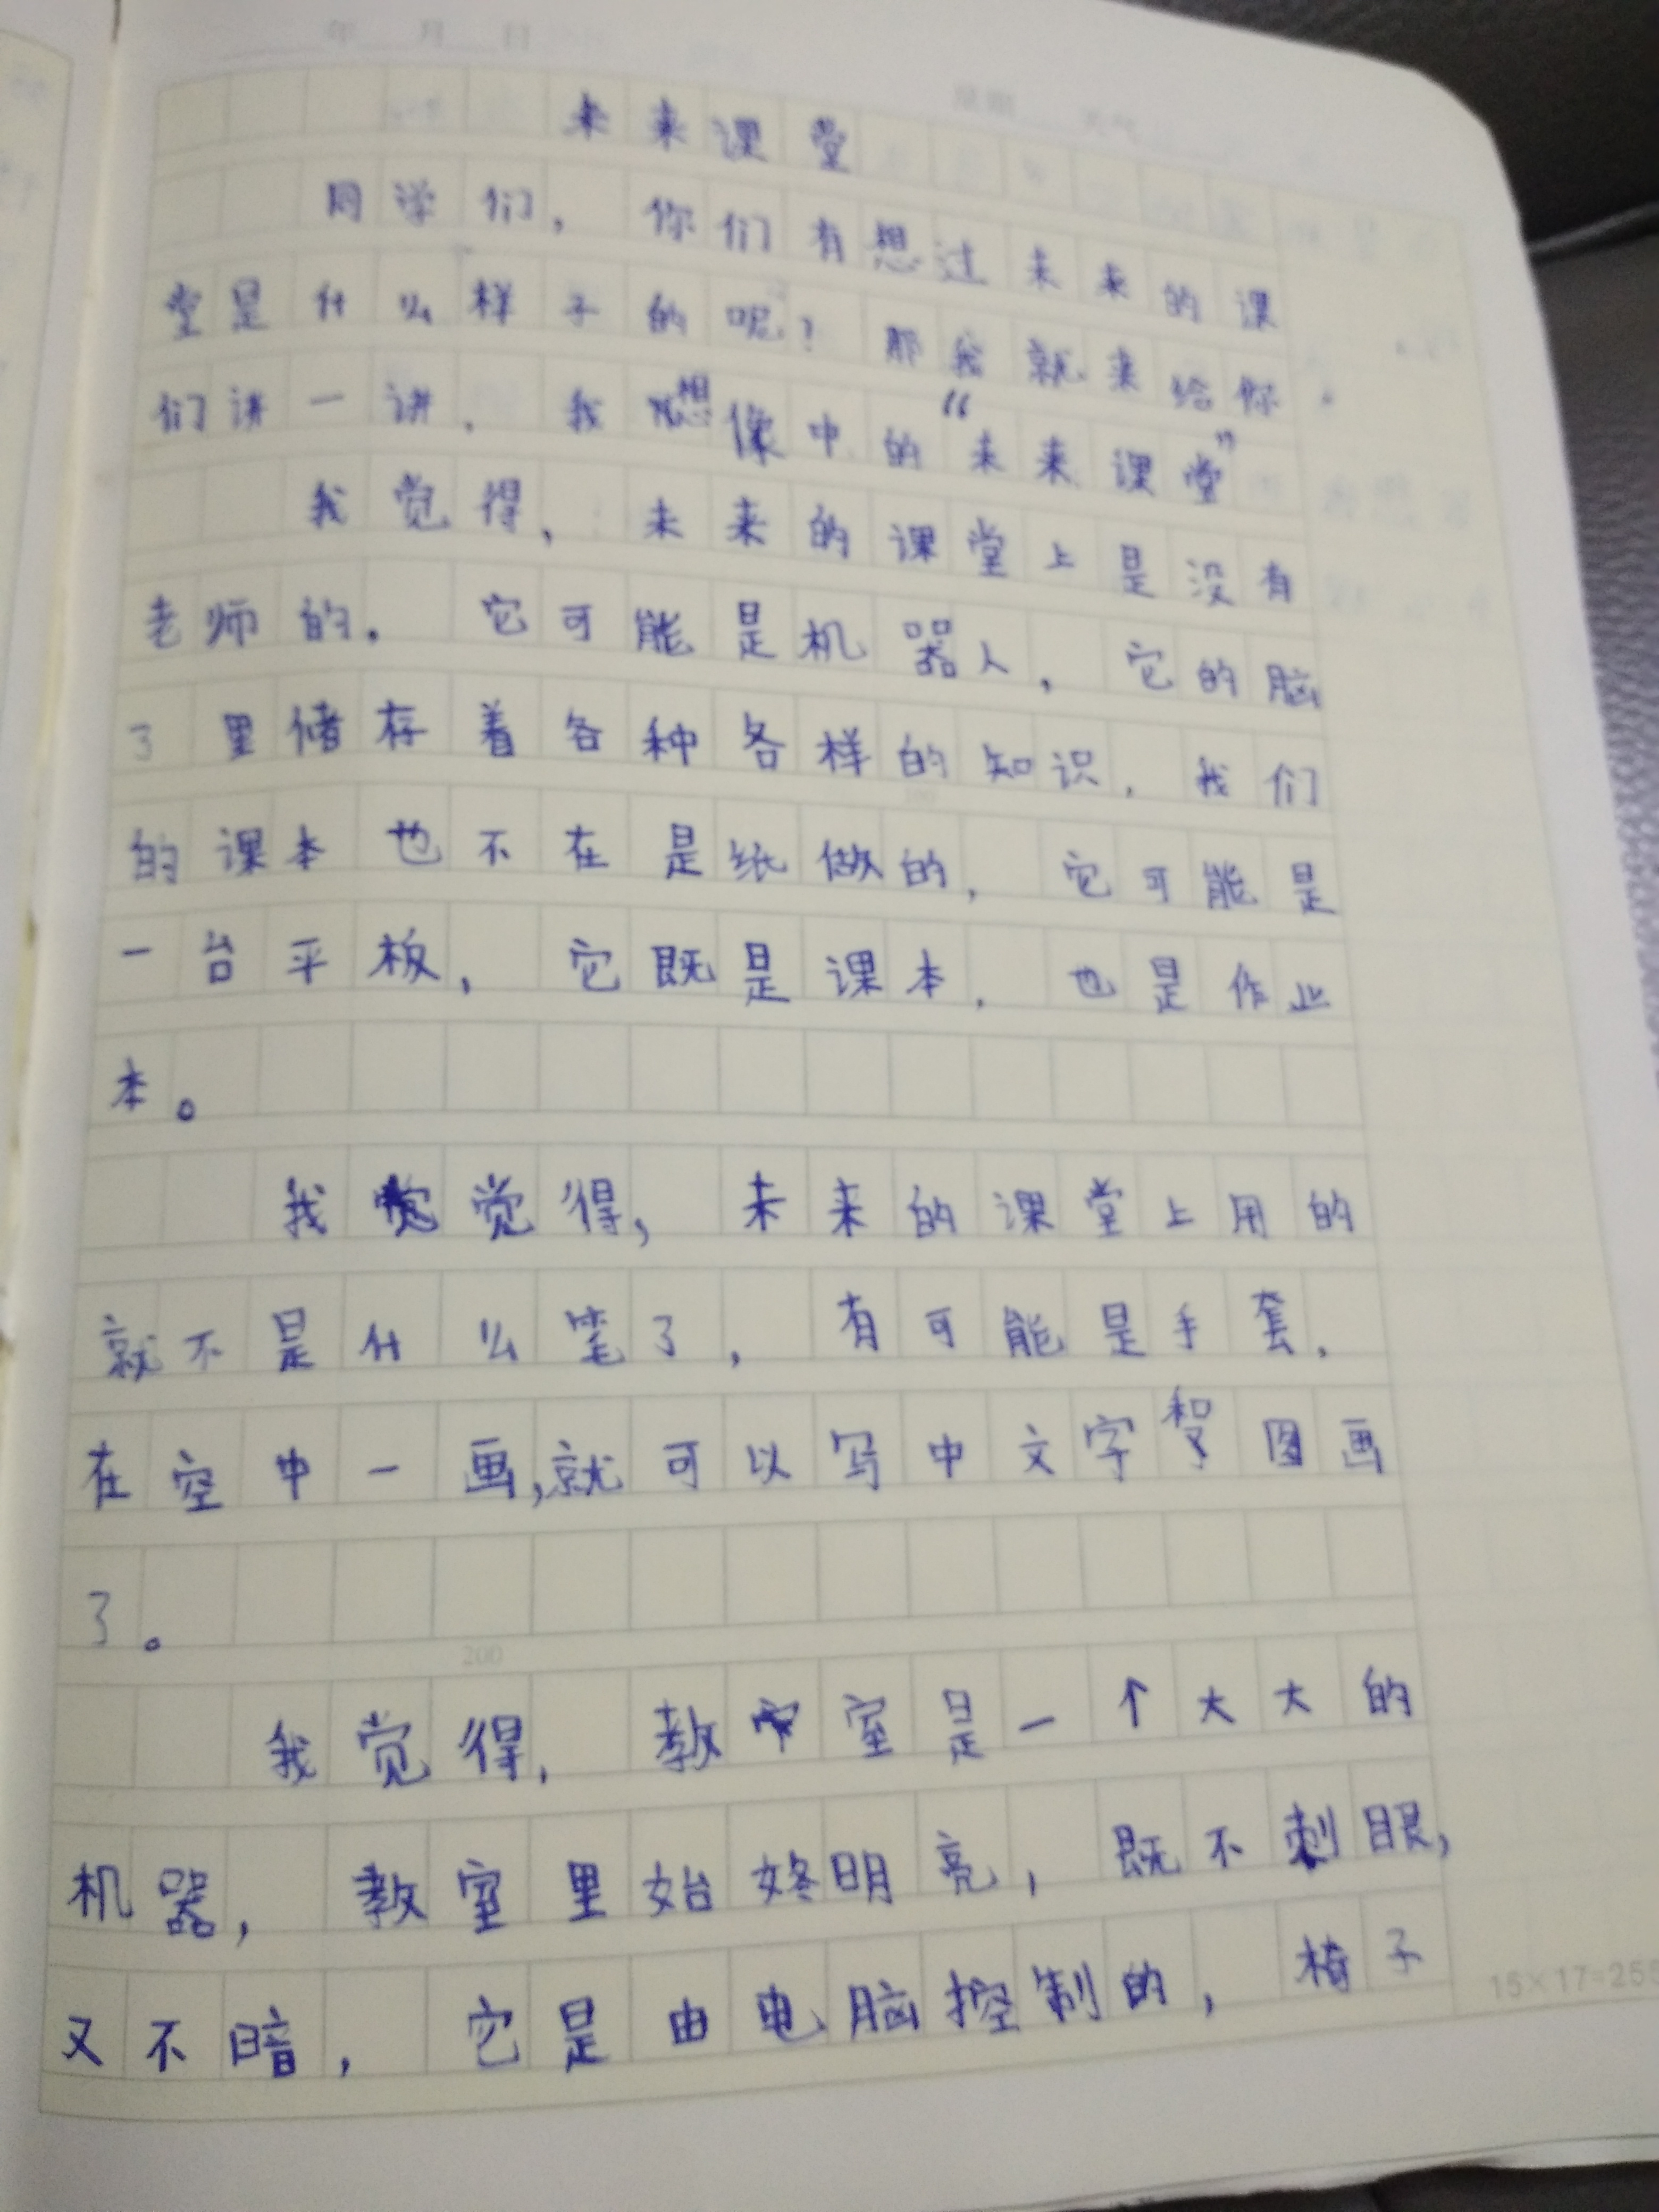 年 月 日
未来课堂
同学们，你们有想过未来的课
堂是什么样子的呢？那我就来给你
们讲一讲，我想像中的“未来课堂”
我觉得，未来的课堂上是没有
老师的。它可能是机器人，它的脑
子里储存着各种各样的知识，我们
的课本也不在是纸做的，它可能是
一台平板，它既是课本，也是作业
本。
我觉得，未来的课堂上用的
就不是什么笔了，有可能是手套，
在空中一画，就可以写中文字和图画
了。
200
我觉得，教室是一个大大的
机器，教室里始终明亮，既不刺眼，
又不暗，它是由电脑控制的，椅子